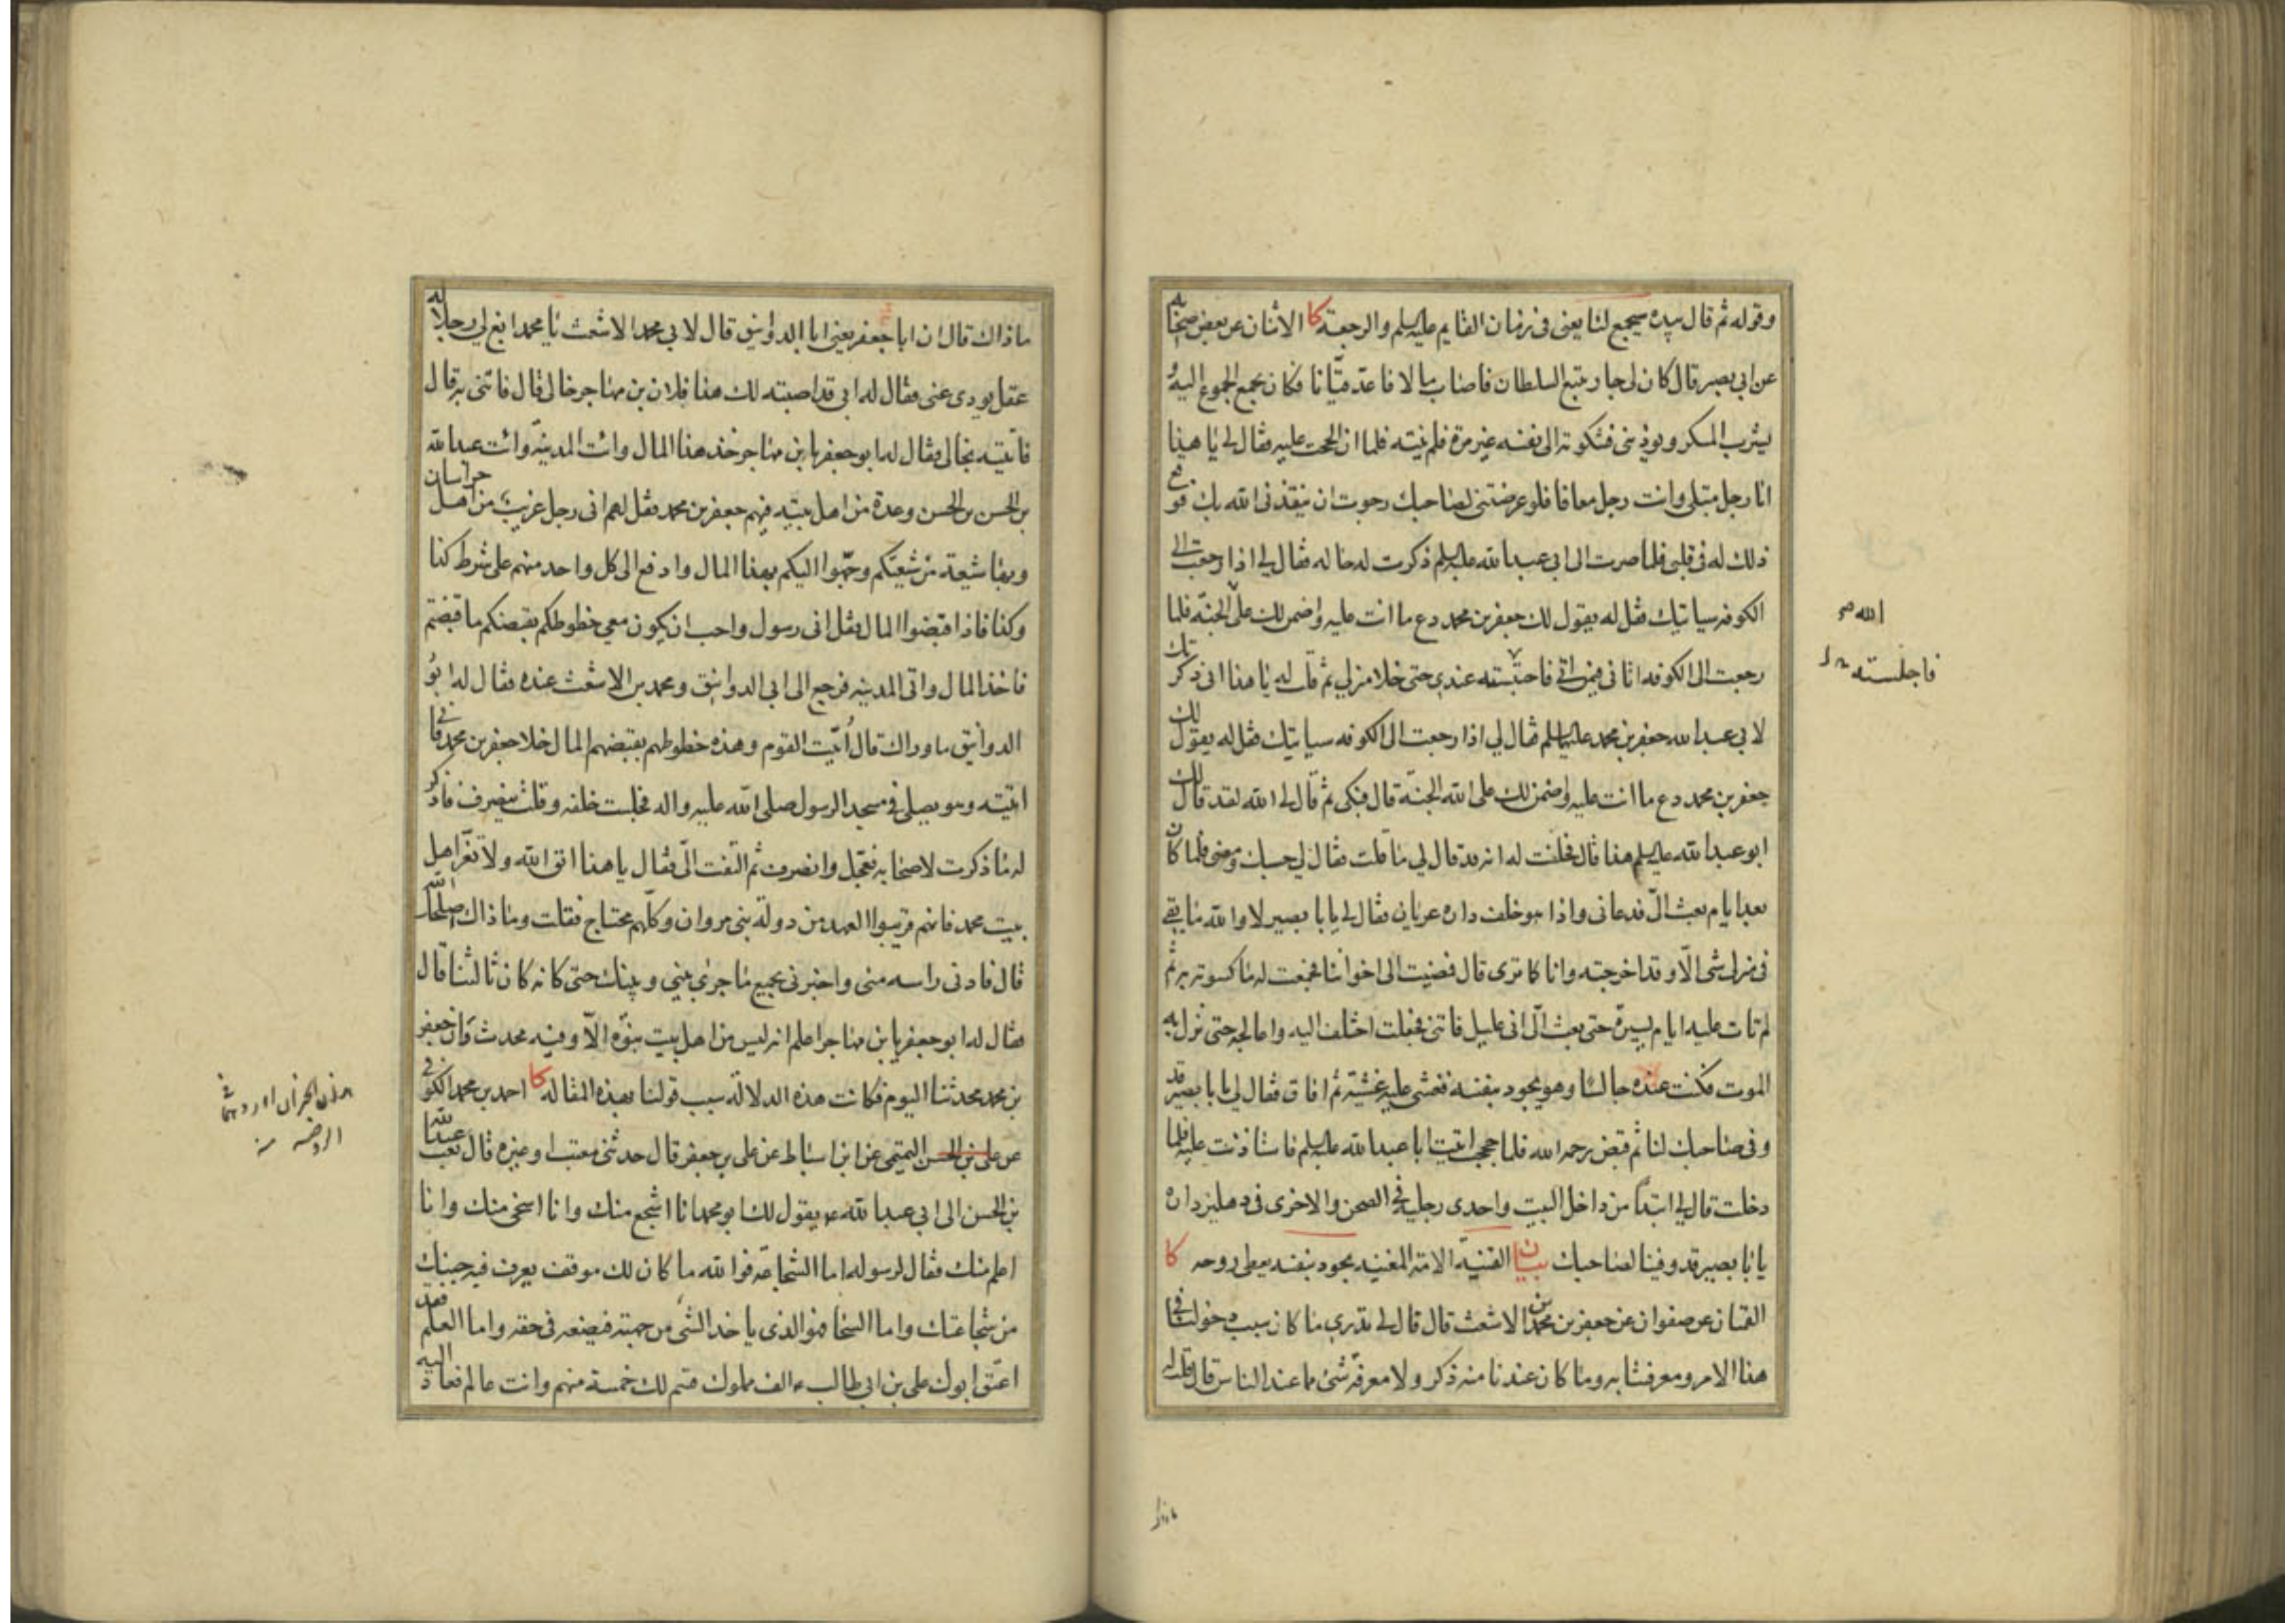 وقوله ثم قال بيده سيجمع لنا يعنى فى زمان القايم عليه السلم والرجعة كا الاثنان عن بعض اصحابه
عن ابى بصير قال كان لى جار يتبع السلطان فاصاب مالا فاعد قيانا فكان يجمع الجموع اليه و
يشرب المسكر ويوذينى فشكوته الى نفسه غير مرة فلم ينته فلما ان الححت عليه فقال لى يا هذا
انا رجل مبتلى وانت رجل معافا فلو عرضتنى لصاحبك رجوت ان ينقذنى الله بك فوقع
ذلك له فى قلبى فلما صرت الى ابى عبد الله عليه السلم ذكرت له حاله فقال لى اذا رجعت الى
الكوفه سياتيك فقل له يقول لك جعفر بن محمد دع ما انت عليه واضمن لك على الجنة فلما
رجعت الى الكوفه اتانى فيمن اتى فاحتبسته عندى حتى خلا منزلى ثم قلت له يا هذا انى ذكرتك
لابى عبد الله جعفر بن محمد عليهما السلم فقال لى اذا رجعت الى الكوفه سياتيك فقل له يقول لك
جعفر بن محمد دع ما انت عليه واضمن لك على الله الجنة قال فبكى ثم قال لى الله لقد قال لك
ابو عبد الله عليه السلم هذا قال فحلفت له انه قد قال لى ما قلت فقال لى حسبك ومضى فلما كان
بعد ايام بعث الى فدعانى واذا هو خلف داره عريان فقال لى يا با بصير لا والله ما بقى
فى منزلى شى الا وقد اخرجته وانا كما ترى قال فمضيت الى اخواننا فجمعت له ما كسوته به ثم
لم تات عليه ايام يسيرة حتى بعث الى انى عليل فاتنى فجعلت اختلف اليه واعالجه حتى نزل به
الموت فكنت عنده جالسا وهو يجود بنفسه فغشى عليه غشية ثم افاق فقال لى يا با بصير قد
وفى صاحبك لنا ثم قبض رحمه الله فلما حججت اتيت ابا عبد الله عليه السلم فاستاذنت عليه فلما
دخلت قال لى ابتداً من داخل البيت واحدى رجلى فى الصحن والاخرى فى دهليز داره
يا با بصير قد وفينا لصاحبك بيان القنية الامة المغنيه يجود بنفسه يعطى روحه كا
القمّان عن صفوان عن جعفر بن محمد بن الاشعث قال قال لى تدرى ما كان سبب دخولنا فى
هذا الامر ومعرفتنا به وما كان عندنا منه ذكر ولا معرفة شى مما عند الناس قال قلت له
الله
فاجلسته
ماذاك
ما ذاك قال ان ابا جعفر يعنى ابا الدوانيق قال لابى محمد الاشعث يا محمد ابغ لى رجلا له
عقل يودى عنى فقال له ابى قد اصبته لك هذا فلان بن مهاجر خالى قال فاتنى به قال
فاتيته بخالى فقال له ابو جعفر يا بن مهاجر خذ هذا المال وائت المدينة وائت عبد الله
بن الحسن بن الحسن وعدة من اهل بيته فيهم جعفر بن محمد فقل لهم انى رجل غريب من اهل خراسان
وبها شيعة من شيعتكم وجّهوا اليكم بهذا المال وادفع الى كل واحد منهم على شرط كذا
وكذا فاذا قبضوا المال فقل انى رسول واحب ان يكون معى خطوطكم بقبضكم ما قبضتم
فاخذ المال واتى المدينه فرجع الى ابى الدوانيق ومحمد بن الاشعث عنده فقال له ابو
الدوانيق ما وراك قال اتيت القوم وهذه خطوطهم بقبضهم المال خلا جعفر بن محمد فانى
اتيته وهو يصلى فى مسجد الرسول صلى الله عليه واله فجلست خلفه وقلت ينصرف فاذكر
له ما ذكرت لاصحابه فعجل وانصرف ثم التفت الىّ فقال يا هذا اتق الله ولا تغر اهل
بيت محمد فانهم قريبوا العهد من دولة بنى مروان وكلهم محتاج فقلت وما ذاك اصلحك الله
قال فادنى راسه منى واخبرنى بجميع ما جرى بينى وبينك حتى كانه كان ثالثنا قال
فقال له ابو جعفر يا بن مهاجر اعلم انه ليس من اهل بيت نبوّه الّا وفيه محدث وان جعفر
بن محمد محدثنا اليوم فكانت هذه الدلالة سبب قولنا بهذه المقاله كا احمد بن محمد الكوفى
عن على بن الحسن التيمى عن ابن اسباط عن على بن جعفر قال حدثنى معتب او غيره قال بعث عبد الله
بن الحسن الى ابى عبد الله ع يقول لك ابو محمد انا اشجع منك وانا اسخى منك وانا
اعلم منك فقال لرسوله اما الشجاعة فوالله ما كان لك موقف يعرف فيه جبنك
من شجاعتك واما السخا فهو الذى ياخذ الشى من جهته فيضعه فى حقه واما العلم فقد
اعتق ابوك على بن ابى طالب ع الف مملوك فسمّ لنا خمسة منهم وانت عالم فعاد اليه
الروضه منه